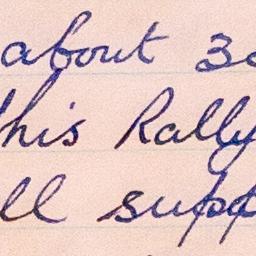 about 30
this Rally
ll supp